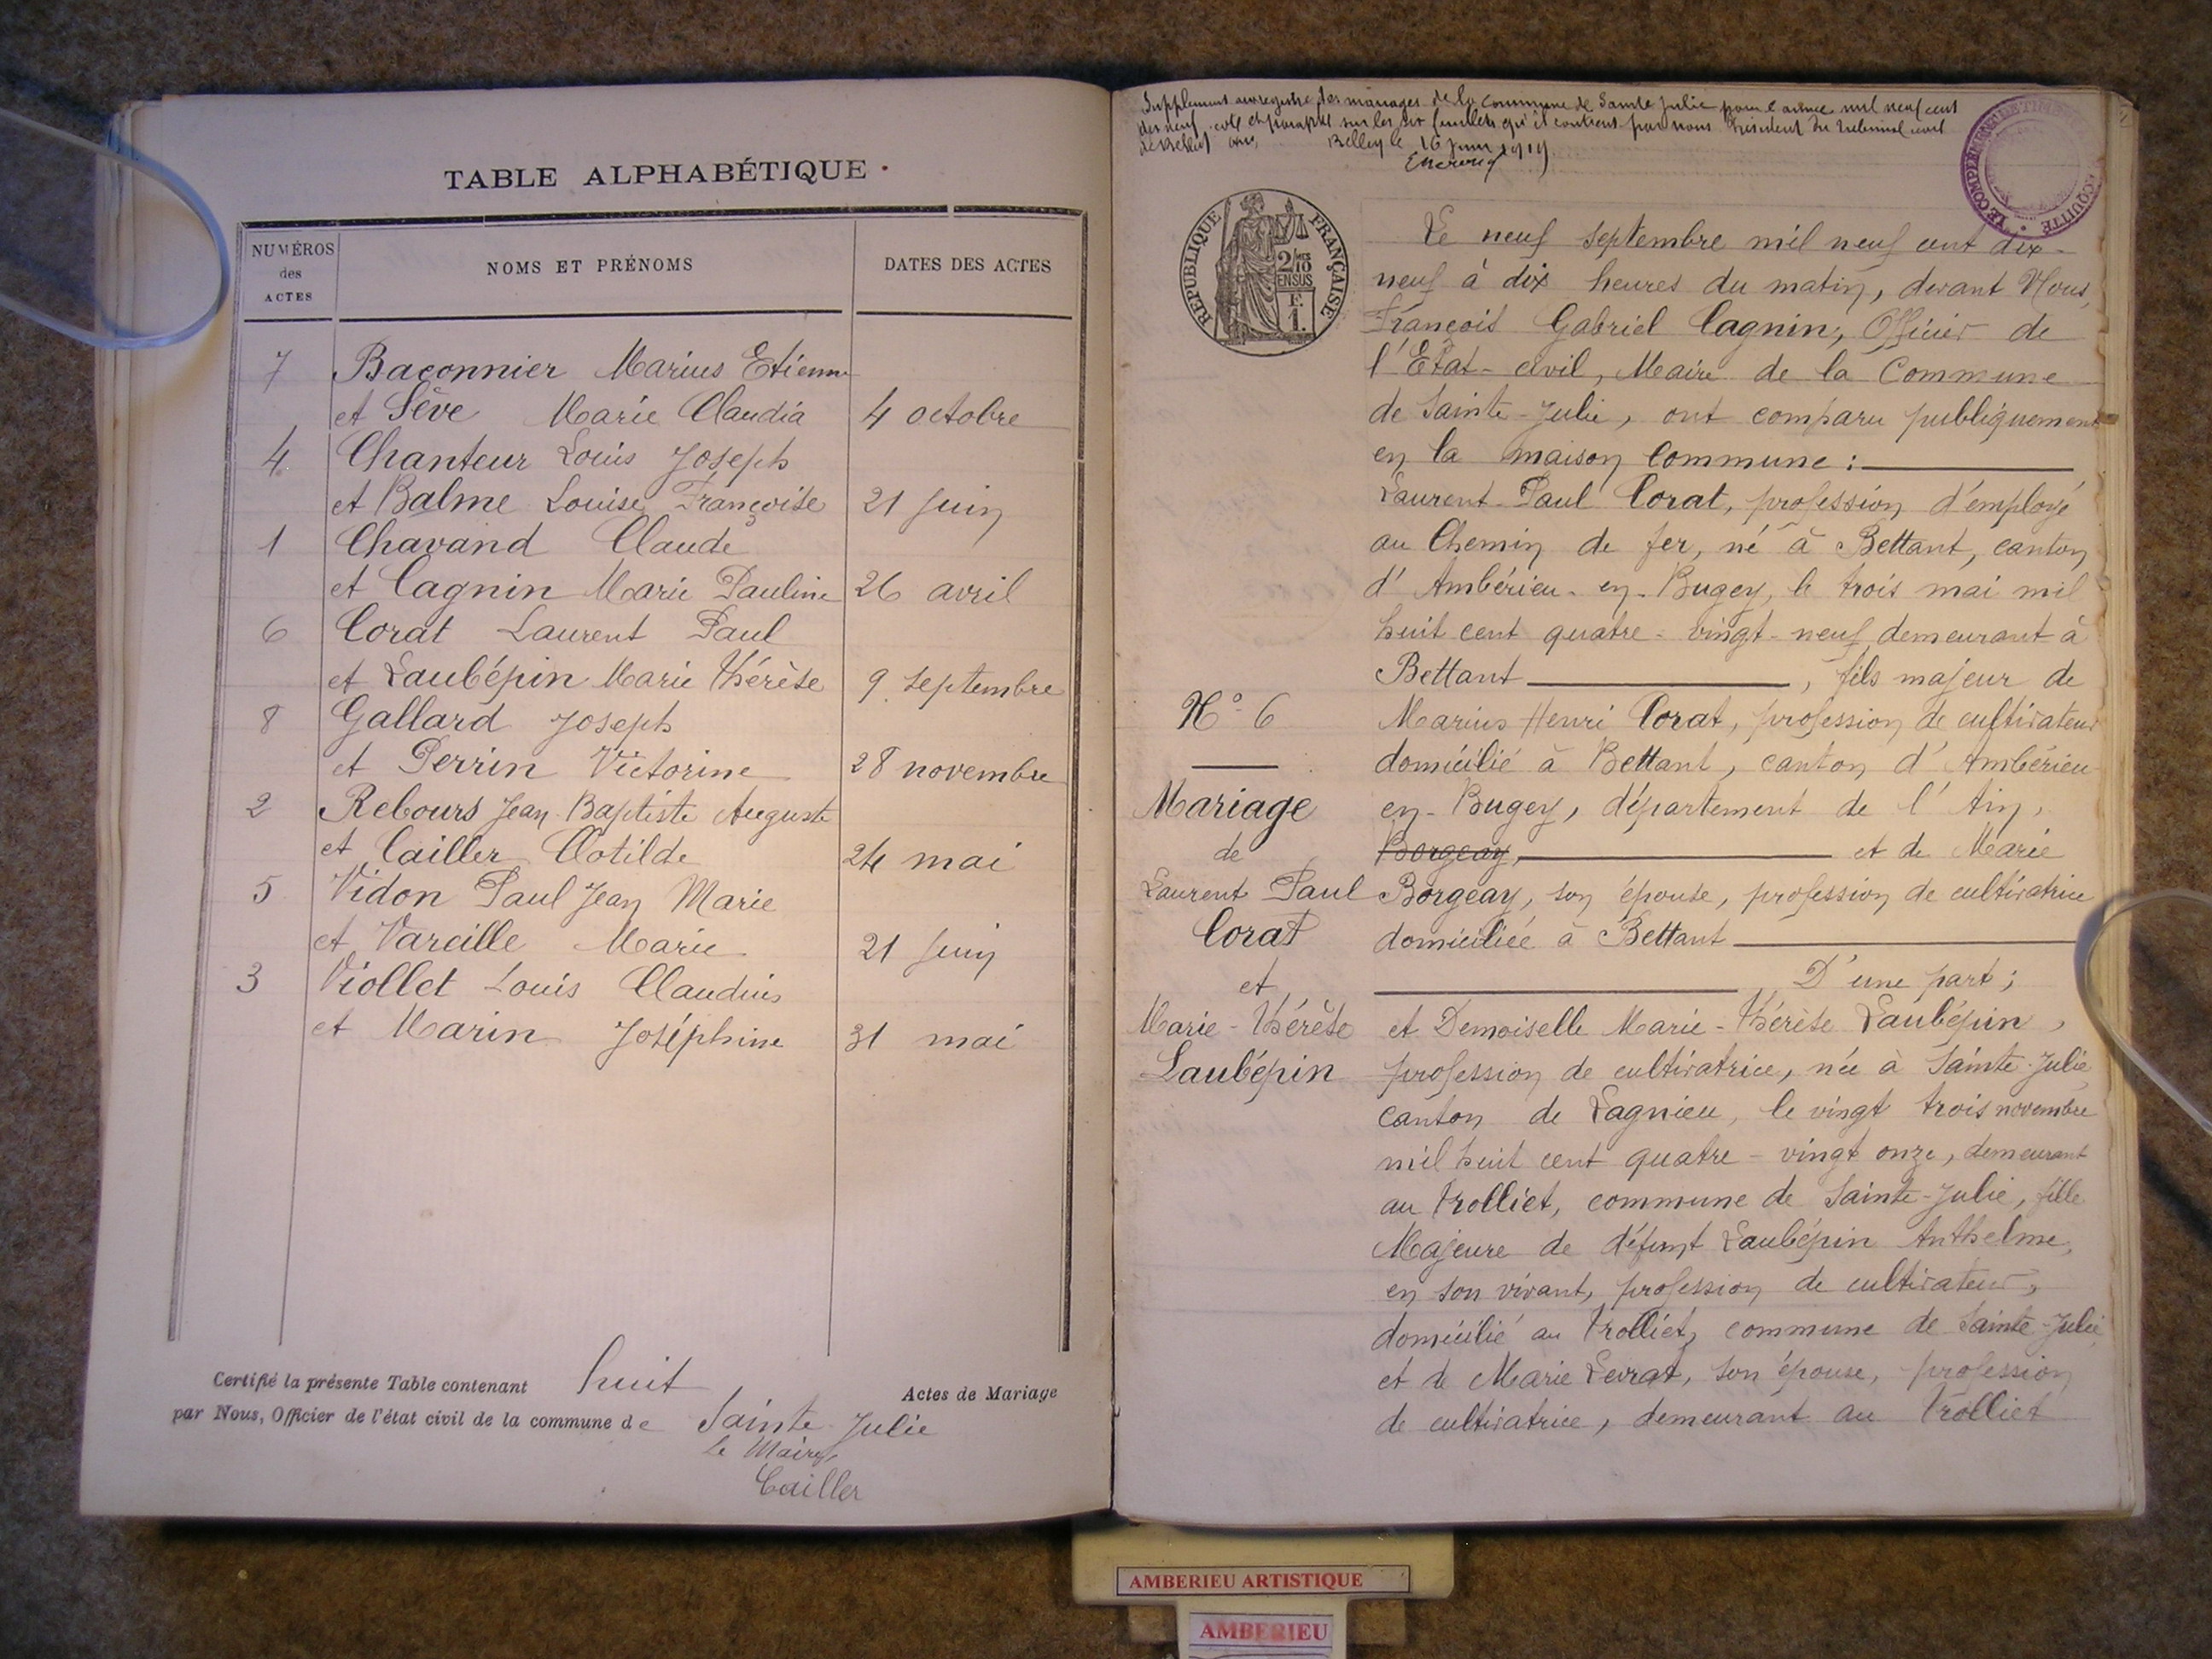 TABLE ALPHABÉTIQUE
NUMÉROS des ACTES
NOMS ET PRÉNOMS
DATES DES ACTES
7 Baconnier Marius Etienne
et Sève Marie Claudia 4 octobre
4 Chanteur Louis Joseph
et Balme Louise Françoise 21 Juin
1 Chavand Claude
et Cagnin Marie Pauline 26 avril
6 Corat Laurent Paul
et Laubépin Marie Thérèse 9 septembre
8 Gallard Joseph
et Perrin Victorine 28 novembre
2 Rebours Jean Baptiste Auguste
et Cailler Clotilde 24 mai
5 Vidon Paul Jean Marie
et Vareille Marie 21 Juin
3 Viollet Louis Claudius
et Marin Joséphine 31 mai
Certifié la présente Table contenant huit Actes de Mariage
par Nous, Officier de l'état civil de la commune de Sainte-Julie
Le Maire,
Cailler
Supplément au registre des mariages de la commune de Sainte Julie pour l'année mil neuf cent
dix neuf coté et paraphé sur les six feuillets qu'il contient par nous Président du Tribunal civil
de Belley Belley le 16 Juin 1919
RÉPUBLIQUE FRANÇAISE
2/10 EN SUS
F. 1.
Le neuf septembre mil neuf cent dix-
neuf à dix heures du matin, devant Nous,
François Gabriel Cagnin, Officier de
l'Etat-civil, Maire de la Commune
de Sainte-Julie, ont comparu publiquement
en la maison Commune :
Laurent-Paul Corat, profession d'employé
au Chemin de fer, né à Bettant, canton
d'Ambérieu-en-Bugey, le trois mai mil
huit cent quatre-vingt-neuf, demeurant à
Bettant, fils majeur de
Marius Henri Corat, profession de cultivateur
domicilié à Bettant, canton d'Ambérieu-
en-Bugey, département de l'Ain,
Borgeay, et de Marie
Borgeay, son épouse, profession de cultivatrice
domiciliée à Bettant
D'une part ;
et Demoiselle Marie-Thérèse Laubépin,
profession de cultivatrice, née à Sainte-Julie
canton de Lagnieu, le vingt trois novembre
mil huit cent quatre-vingt onze, demeurant
au Trolliet, commune de Sainte-Julie, fille
Majeure de défunt Laubépin Anthelme,
en son vivant, profession de cultivateur,
domicilié au Trolliet, commune de Sainte-Julie
et de Marie Levrat, son épouse, profession
de cultivatrice, demeurant au Trolliet
N° 6
Mariage
de
Laurent Paul
Corat
et
Marie-Thérèse
Laubépin
AMBERIEU ARTISTIQUE
AMBERIEU